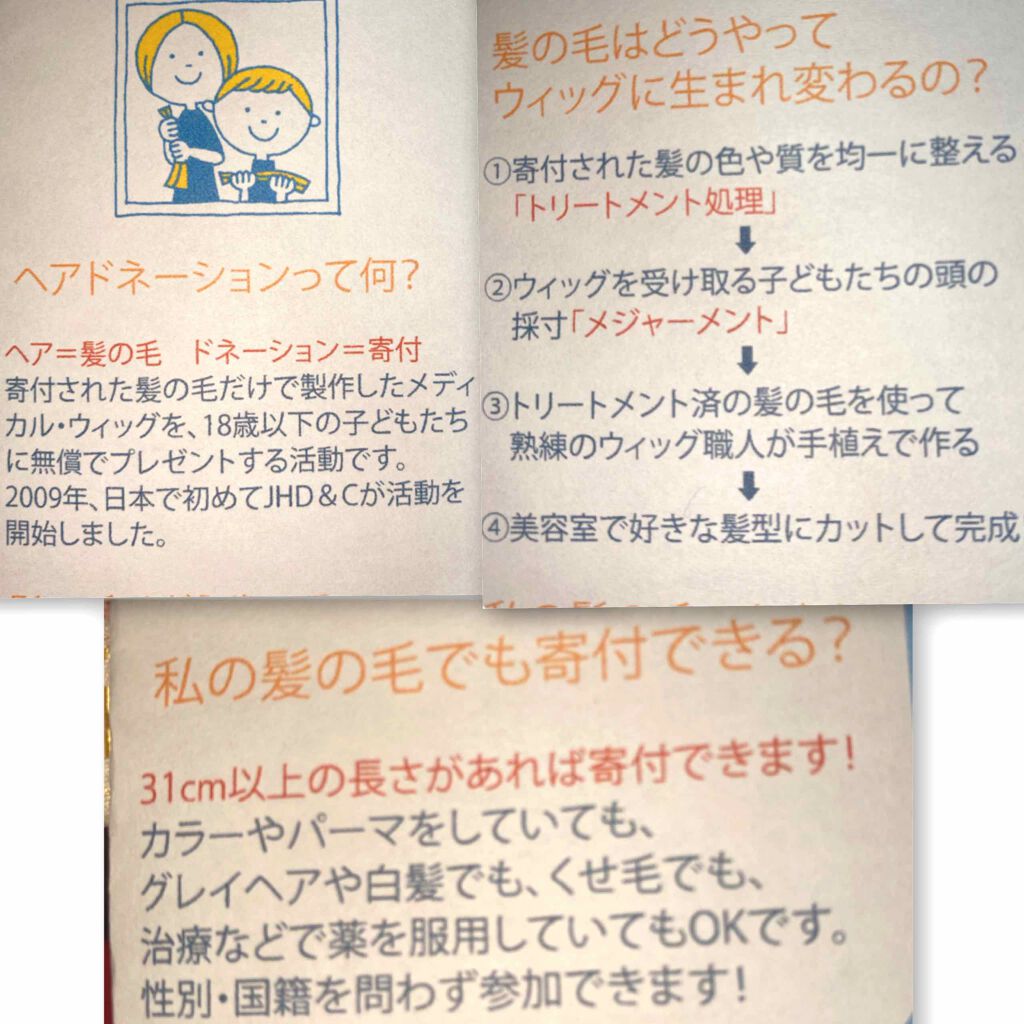 ヘアドネーションって何?
ヘア=髪の毛 ドネーション=寄付
寄付された髪の毛だけで製作したメディ
カル・ウィッグを、18歳以下の子どもたち
に無償でプレゼントする活動です。
2009年、日本で初めてJHD&Cが活動を
開始しました。
髪の毛はどうやって
ウィッグに生まれ変わるの?
①寄付された髪の色や質を均一に整える
「トリートメント処理」
②ウィッグを受け取る子どもたちの頭の
採寸「メジャーメント」
③トリートメント済の髪の毛を使って
熟練のウィッグ職人が手植えで作る
④美容室で好きな髪型にカットして完成
私の髪の毛でも寄付できる?
31cm以上の長さがあれば寄付できます!
カラーやパーマをしていても、
グレイヘアや白髪でも、くせ毛でも、
治療などで薬を服用していてもOKです。
性別・国籍を問わず参加できます!